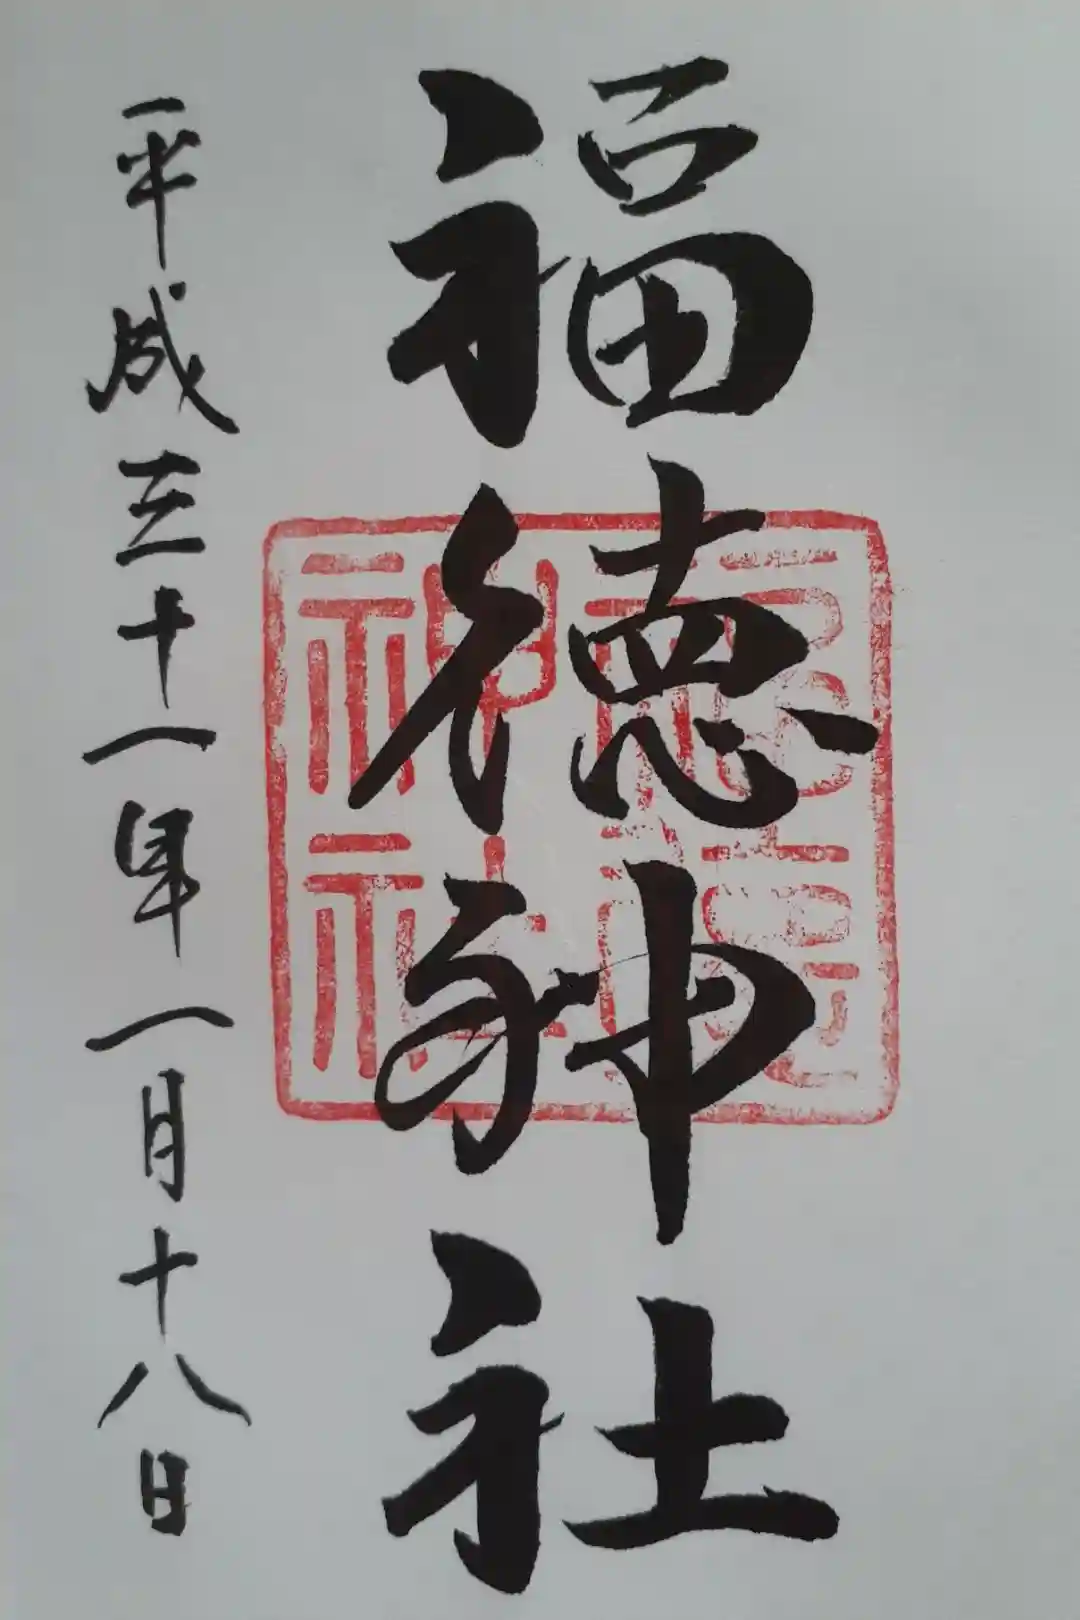 福徳神社
福徳神社
平成三十一年一月十八日